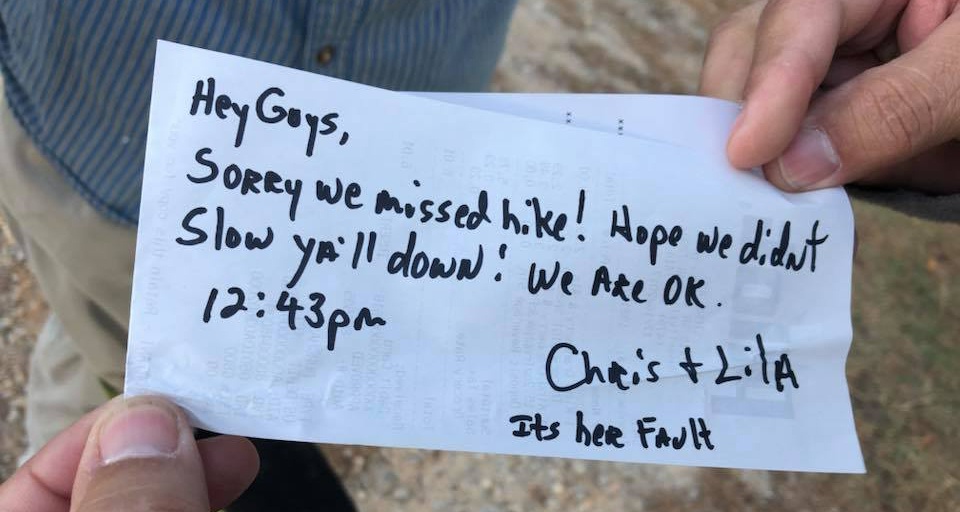 Hey Guys,
Sorry we missed hike! Hope we didnt
Slow ya'll down! We Are OK.
12:43pm
Chris + Lila
Its her Fault